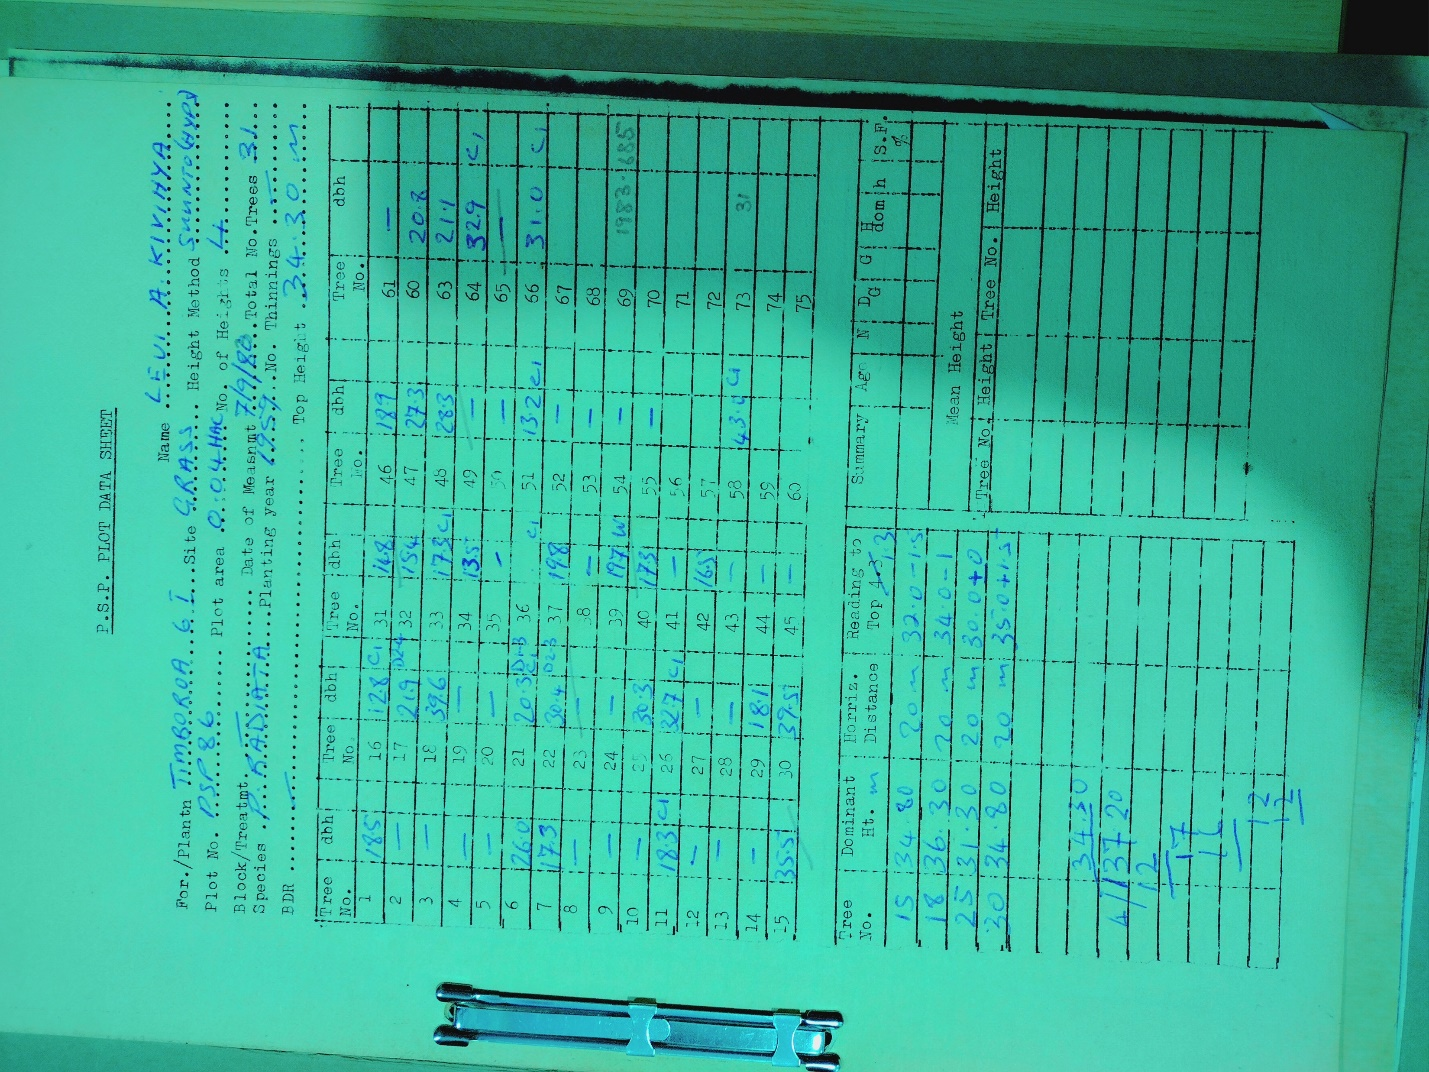 P.S.P. PLOT DATA SHEET
Name LEVI. A. KIVIHYA
For./Plantn TIMBOROA 6.I Site GRASS Height Method SUUNTO
Plot No. PSP 86 Plot area 0.04 HAC No. of Heights 4
Block/Treatmt — Date of Measnmt 7/9/83 Total No. Trees 31
Species P. RADIATA Planting year 1959 No. Thinnings —
BDR — Top Height 34.30 m
Tree No. dbh Tree No. dbh Tree No. dbh Tree No. dbh Tree No. dbh
1 18.5 16 12.8 C1 31 14.8 46 18.9 61 —
2 — 17 21.9 D24 32 15.4 47 27.3 60 20.8
3 — 18 39.6 33 17.3 C1 48 28.3 63 21.1
4 — 19 — 34 13.5 49 — 64 32.9 C1
5 — 20 — 35 — 50 65 —
6 26.0 21 20.3 C1 36 C1 51 13.2 C1 66 31.0 C1
7 17.3 22 30.4 37 19.8 52 — 67
8 — 23 — 38 — 53 — 68
9 — 24 — 39 19.7 W 54 — 69 1983.685
10 — 25 30.3 40 17.3 55 — 70
11 18.3 C1 26 32.7 C1 41 — 56 71
12 — 27 — 42 16.5 57 72
13 — 28 — 43 — 58 43.0 C1 73 31
14 — 29 18.1 44 — 59 74
15 35.5 30 39.5 45 — 60 75
Tree No. Dominant Ht. m Horriz. Distance Reading to Top
15 34.80 20 m 32.0 -1.5
18 36.30 20 m 34.0 -1
25 31.30 20 m 30.0 +0
30 34.80 20 m 35.0 +1.5
34.30
4/137.20
12
17
12
12
Summary Age N D G G H dom h S.F. %
Mean Height
Tree No. Height Tree No. Height